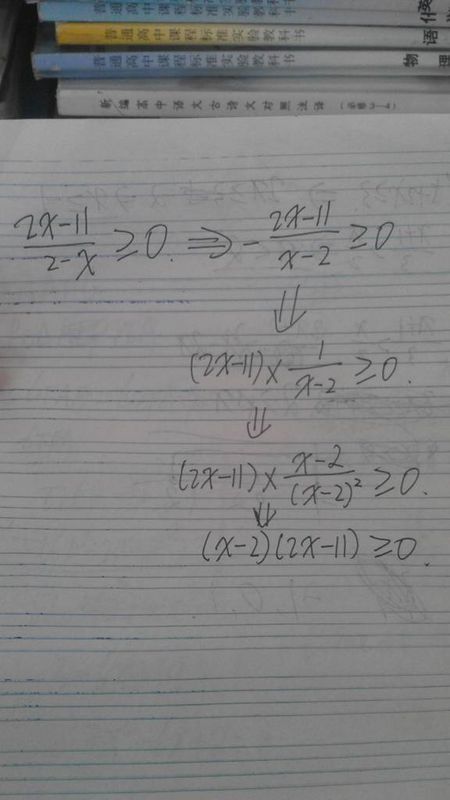 普通高中课程标准实验教科书
普通高中课程标准实验教科书
普通高中课程标准实验教科书
语
物理
新编高中语文古诗文对照注译
\frac{2x-11}{2-x} ≥ 0. ⇒ -\frac{2x-11}{x-2} ≥ 0
⇓
(2x-11) × \frac{1}{x-2} ≥ 0.
⇓
(2x-11) × \frac{x-2}{(x-2)^2} ≥ 0.
⇓
(x-2)(2x-11) ≥ 0.